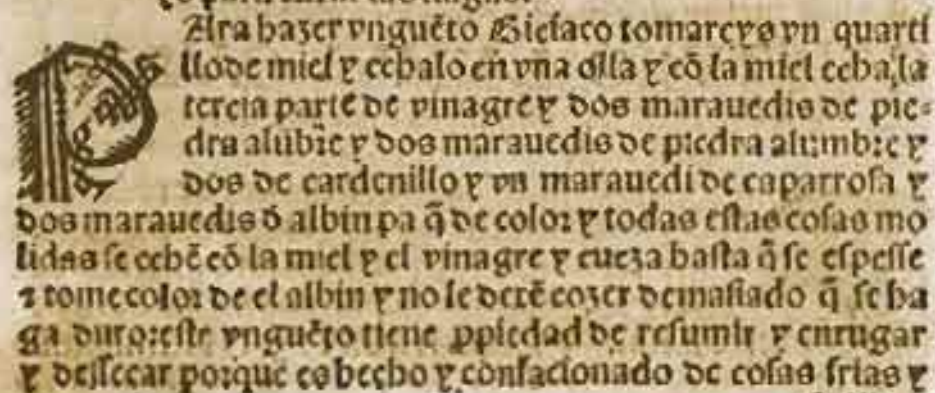 PAra hazer vnguẽto Egiciaco tomareys vn quarti
llo de miel y echalo en vna olla y cõ la miel echa la
tercia parte de vinagre y dos marauedis de pie-
dra alũbre y dos marauedis de piedra alumbre y
dos de cardenillo y vn marauedi de caparrosa y
dos marauedis ð albin pa q̃ de color y todas estas cosas mo
lidas se echẽ cõ la miel y el vinagre y cueza hasta q̃ se espesse
⁊ tome color de el albin y no se dexẽ cozer demasiado q̃ se ha
ga duro: este vnguẽto tiene ꝓpiedad de resumir y enrugar
y dessecar porque es hecho y confacionado de cosas frias y